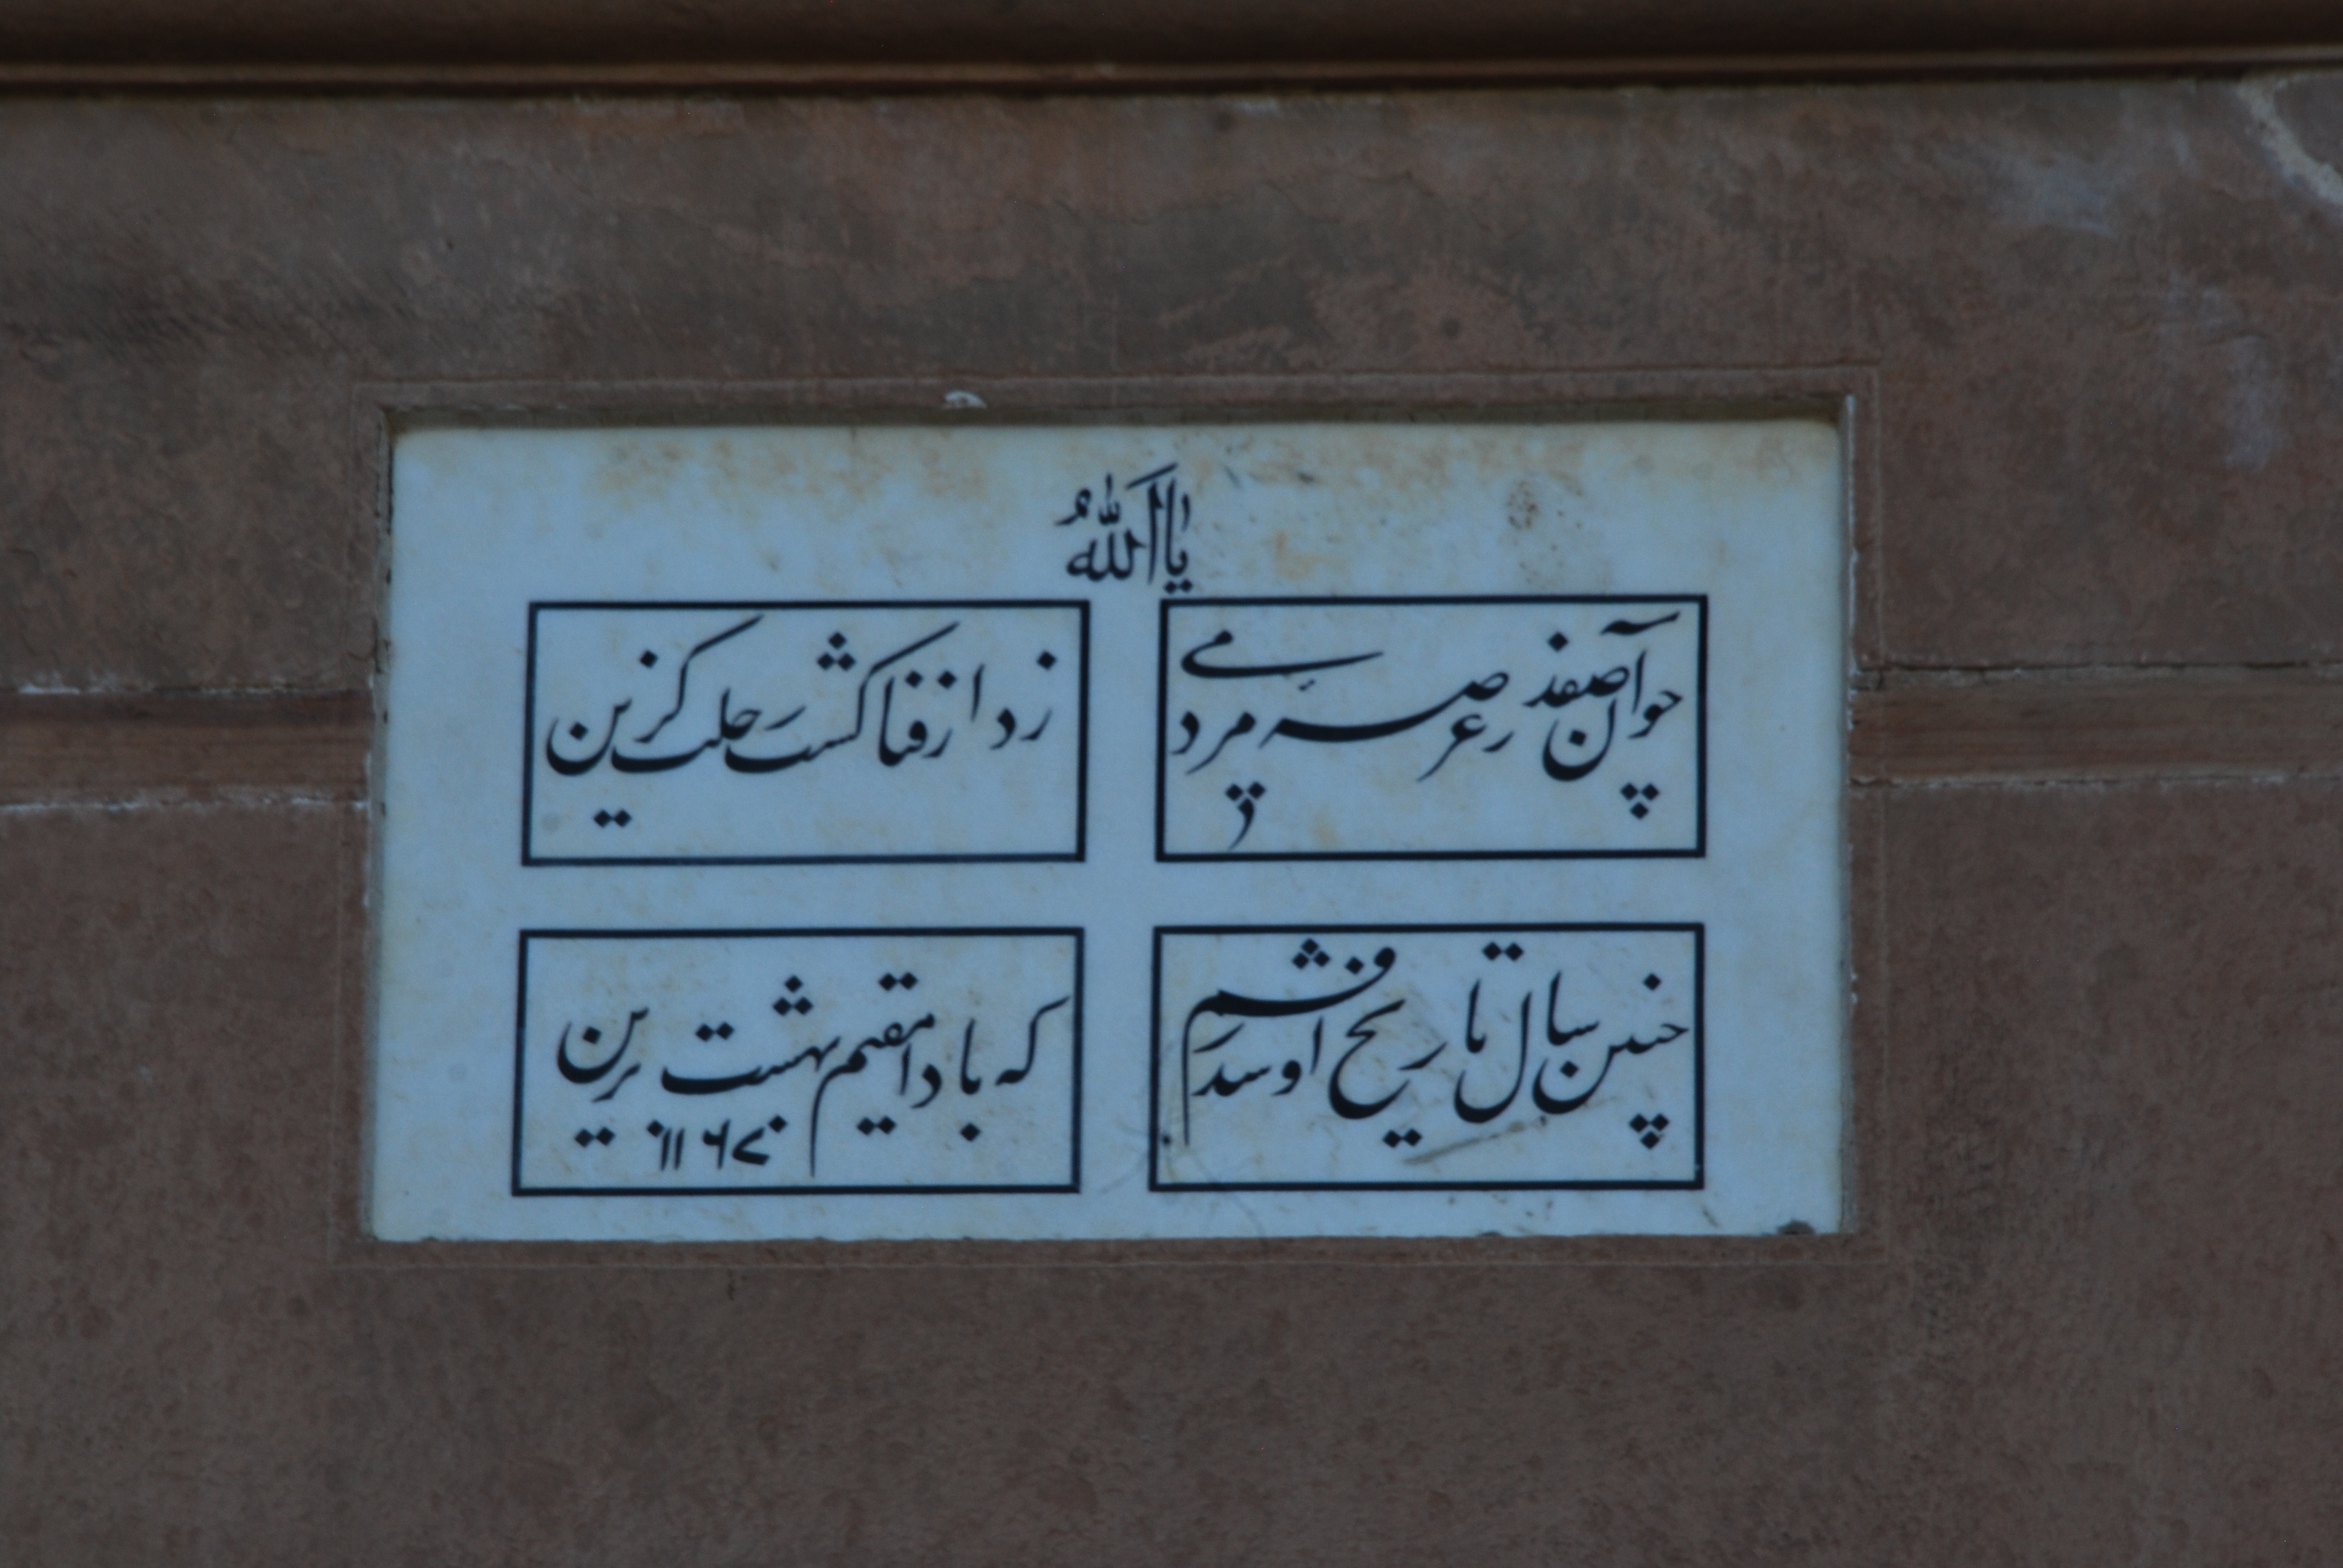 یا اللہ
چو آن صفدر عرصہ مردمے
ز دار فنا کشت رحلت کزین
چنین سال تاریخ او شد رقم
کہ بادا مقیم بهشت برین
۱۱۶۷